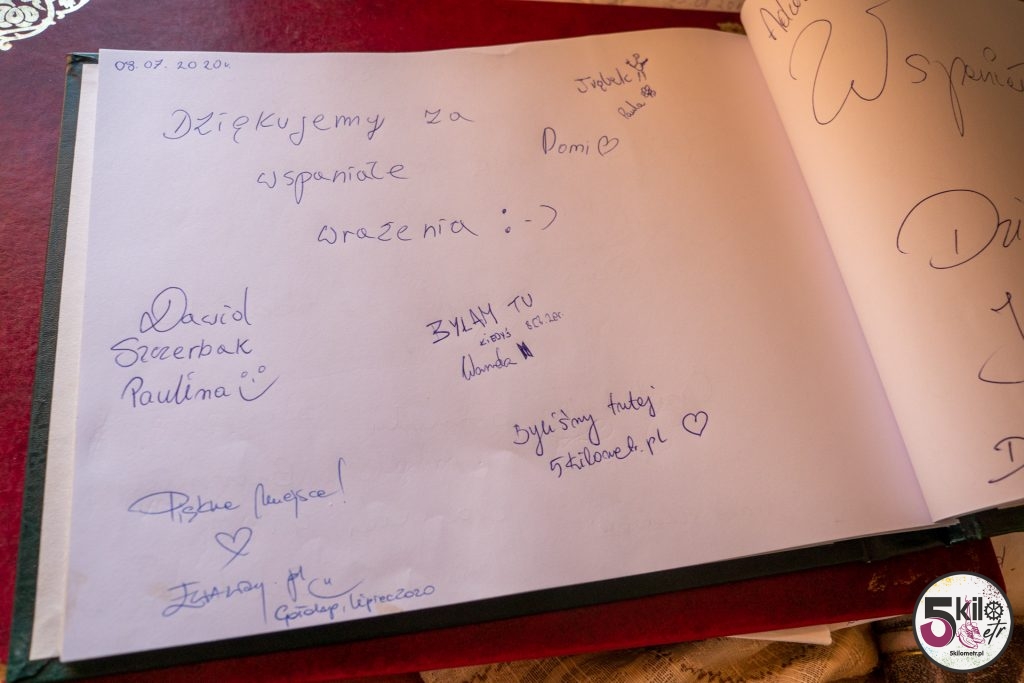 08.07.2020r.
Dziękujemy za
wspaniałe
wrażenia :-)
Domi
Dawid
Szczerbak
Paulina
BYŁAM TU
KIEDYŚ
Wanda
Byliśmy tutaj
5kilometr.pl
Piękne miejsce!
.pl
Gołdap, lipiec 2020
Wspaniał
Dzi
D
5kilometr
5kilometr.pl